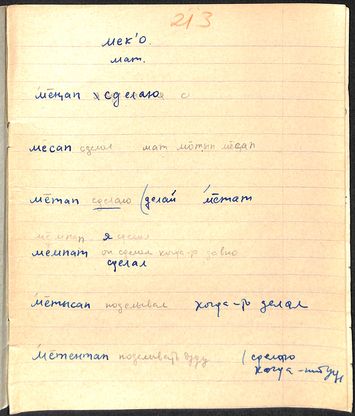 213
мек'о.
мат.
ме̄ңап сделаю
ме̄сап сделал мат мо̄тып ме̄сап
ме̄тап сделаю (делай ме̄тат
я сделал
мемпат он сделал когда-то давно
сделал
ме̄тысап поделывал когда-то делал
ме̄тентап поделывать буду (сделаю
когда-нибудь